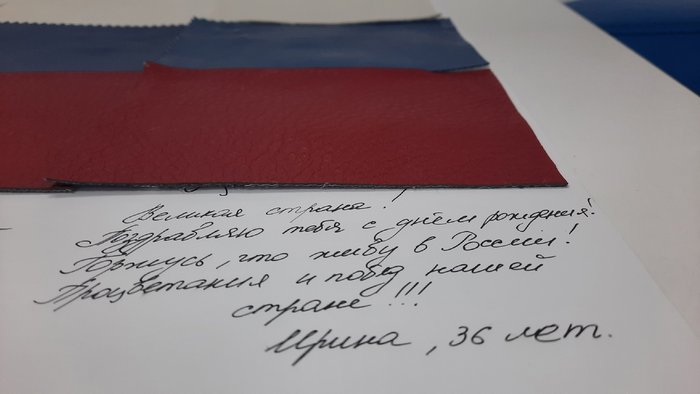 Великая страна!
Поздравляю тебя с днём рождения!
Горжусь, что живу в России!
Процветания и побед нашей
стране!!!
Ирина, 36 лет.